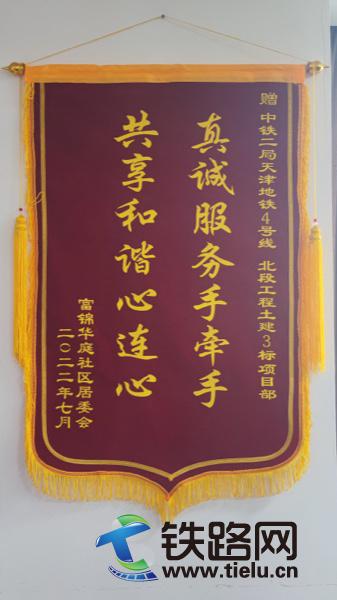 赠 中铁二局天津地铁4号线 北段工程土建3标项目部
真诚服务手牵手
共享和谐心连心
富锦华庭社区居委会
二〇二二年七月
铁路网
www.tielu.cn